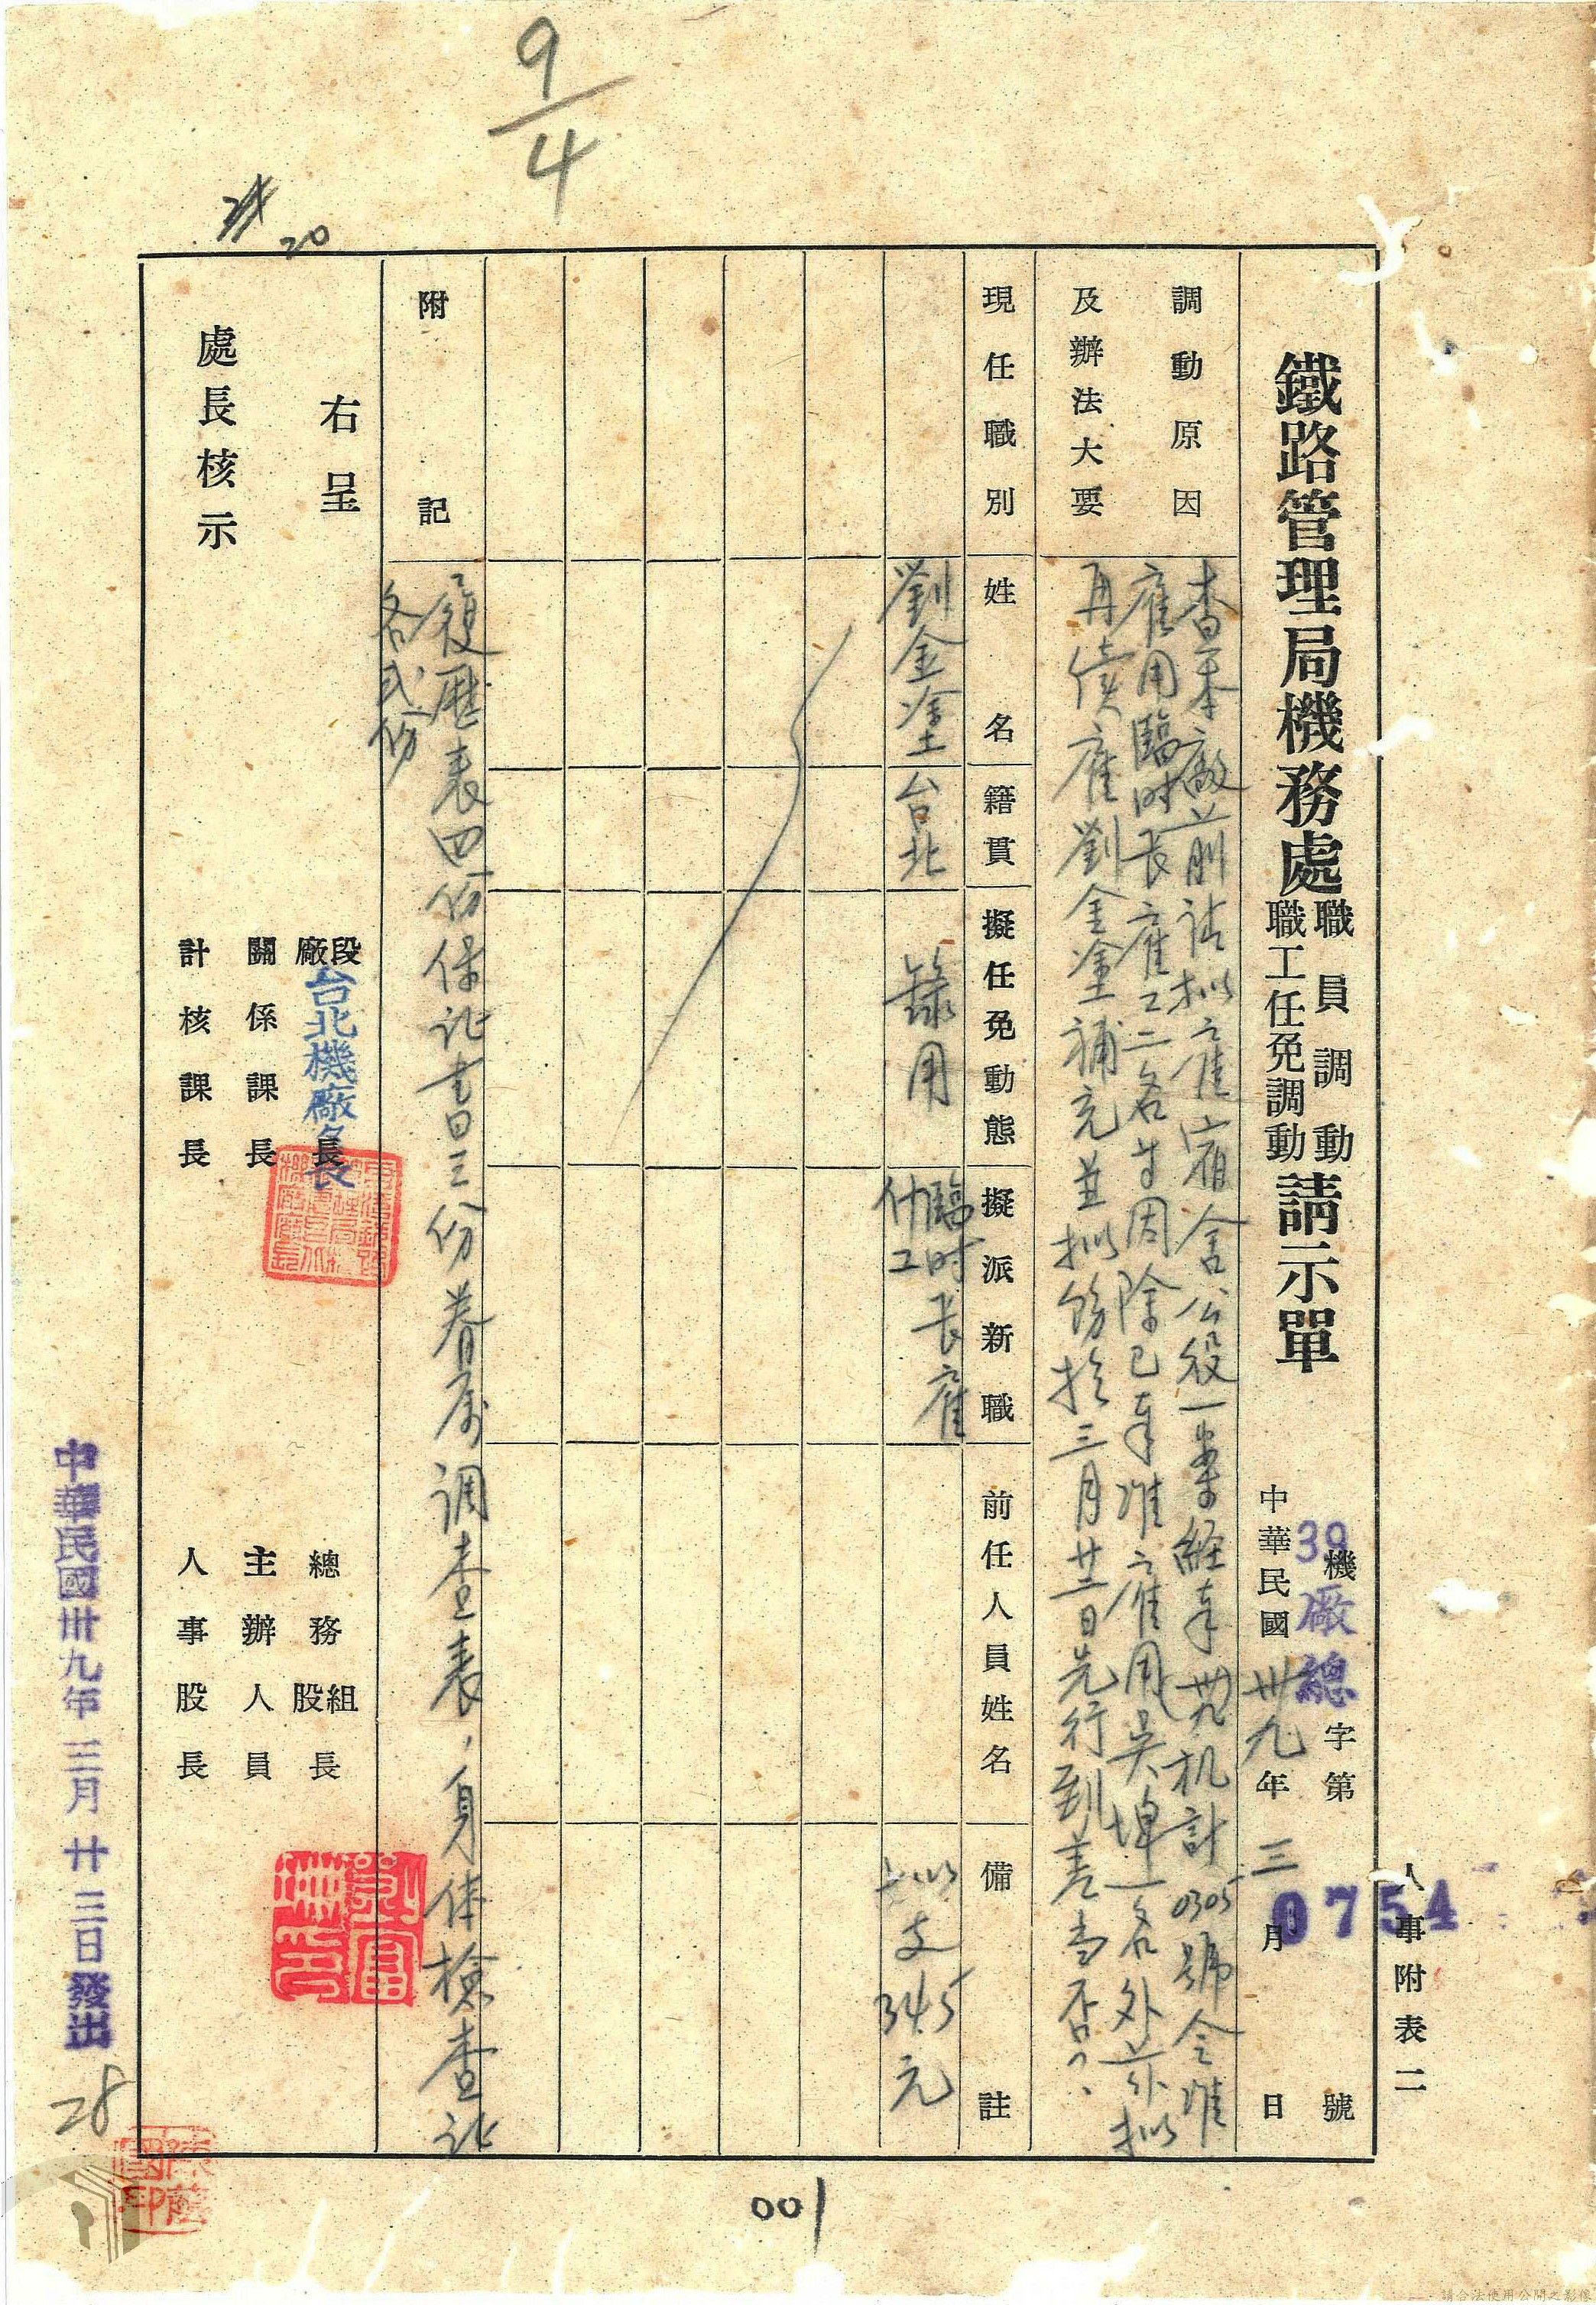 9/4
20
人事附表二
鐵路管理局機務處職員調動職工任免調動請示單
39機廠總字第0754號
中華民國卅九年三月 日
調動原因及辦法大要
查本廠前請拟雇宿舍公役一案經奉卅九机計0305號令准
雇用臨时長雇工二名等因除已奉准雇用吳埤一名外茲亦拟
再續雇劉金塗補充並拟飭於三月廿二日先行到差當否?、
現任職別
姓名
籍貫
擬任免動態
擬派新職
前任人員姓名
備註
劉金塗
台北
錄用
臨时長雇
小工
拟支345元
附記
履歷表四份保証書三份眷屬調查表、身体檢查証
各弍份
右呈
處長核示
段廠長
台北機廠長
關係課長
計核課長
總務組股長
主辦人員
人事股長
中華民國卅九年三月廿三日發出
28
001
請合法使用公開之影像